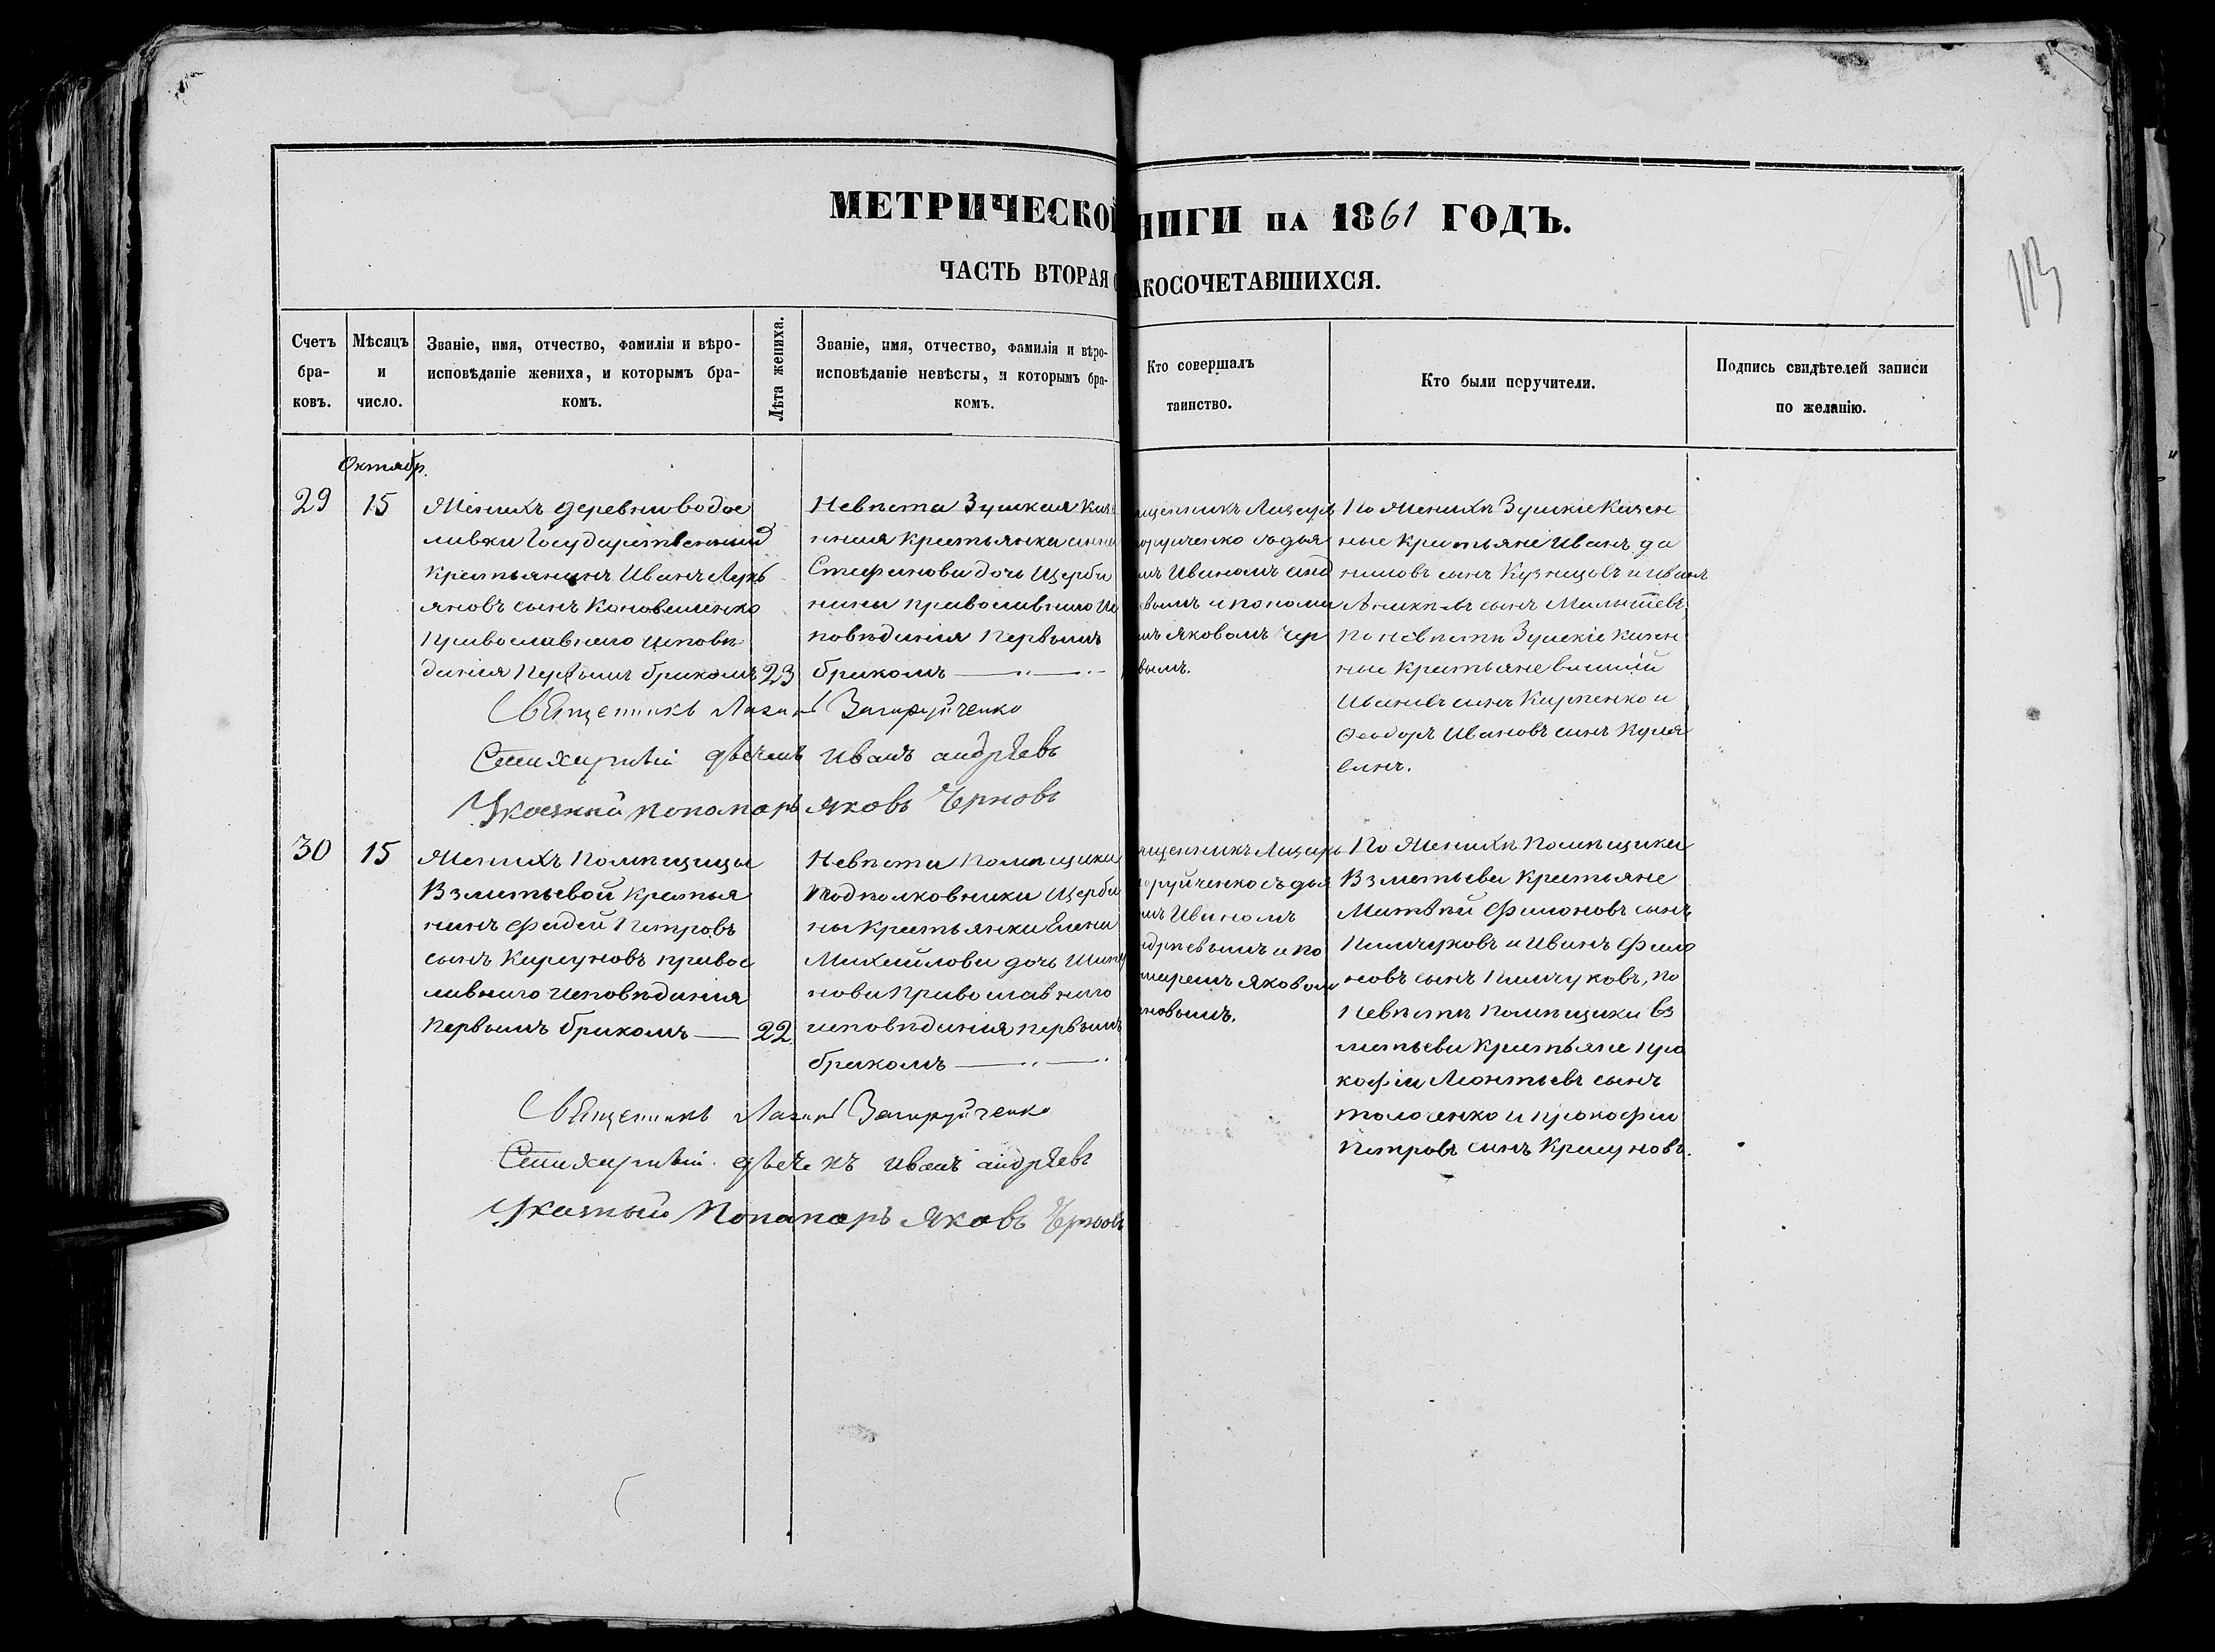 МЕТРИЧЕСКОЙ НИГИ НА 1861 ГОДЪ.
ЧАСТЬ ВТОРАЯ АКОСОЧЕТАВШИХСЯ.
113
Счетъ бра- ковъ.
Мѣсяцъ и число.
Званіе, имя, отчество, фамилія и вѣро-
исповѣданіе жениха, и которымъ бра-
комъ.
Лѣта жениха.
Званіе, имя, отчество, фамилія и вѣро-
исповѣданіе невѣсты, и которымъ бра-
комъ.
Кто совершалъ
таинство.
Кто были поручители.
Подпись свидѣтелей записи
по желанію.
Октябр.
29
15
Женихъ деревни Водос
ливки Государственный
Крестьянинъ Иванъ Лукь
яновъ сынъ Коноваленко
Православнаго исповѣ
данія Первымъ бракомъ
23
Невѣста Зуйкая Казе
нная Крестьянка
Стефанова дочь Щерби
нина православнаго Ис
повѣданія Первымъ
бракомъ
щенникъ Лазарь
оруйченко съ дья
мъ Иваномъ анд
евымъ и понома
мъ Яковомъ Чер
вымъ.
По Женихѣ Зуйкіе Казен
ные Крестьяне Иванъ да
ниловъ сынъ Кузнецовъ и Иванъ
сынъ Малышевъ,
По невѣстѣ Зуйкіе Казен
ные Крестьяне василій
Ивановъ сынъ Карпенко и
Ѳеодоръ Ивановъ сынъ Куля
бинъ.
Священникъ Лазарь Загоруйченко
Стихарный дьячекъ Иванъ андрѣевъ
Указный Пономарь Яковъ Черновъ
30
15
Женихъ Помѣщицы
Взметьевой Крестья
нинъ Фадей Петровъ
сынъ Карауновъ правос
лавнаго исповѣданія
Первымъ бракомъ
22.
Невѣста Помѣщика
Подполковника Щерби
ны Крестьянка Елена
Михайлова дочь
нова Православнаго
исповѣданія первымъ
бракомъ
ященникъ Лазарь
оруйченко съ дья
мъ Иваномъ
ндрѣевымъ и по
маремъ Яковомъ
рновымъ.
По Женихѣ Помѣщика
Взметьева Крестьяне
Матвѣй Филоновъ сынъ
Памчуковъ и Иванъ Фило
новъ сынъ Памчуковъ, по
Невѣстѣ Помѣщика Вз
метьева Крестьяне про
кофій Леонтьевъ сынъ
толоченко и прокофій
Петровъ сынъ Крауновъ.
Священникъ Лазарь Загоруйченко
Стихарный дьячекъ Иванъ андрѣевъ
Указный Пономарь Яковъ Черновъ